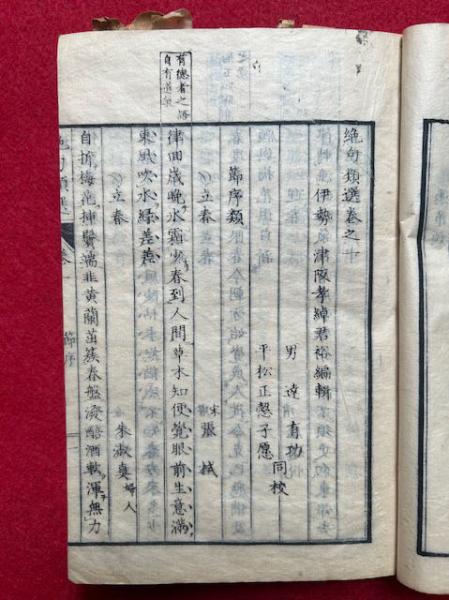 絶句類選卷之十
伊勢 津阪孝綽君裕編輯
男 達 有功
平松正愨子愿
同校
節序類
立春
宋 張栻
律回歲晚冰霜少春到人間草木知便覺眼前生意滿
東風吹水綠差差
立春
朱淑眞 婦人
自折梅花挿鬢端韭黃蘭茁簇春盤潑醅酒軟渾無力
有德者之語
自有道氣
絶句類選
卷
節序